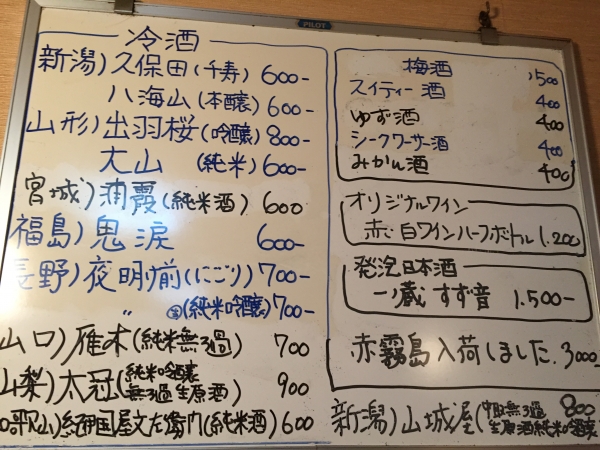 PILOT
冷酒
新潟)久保田(千寿) 600-
八海山(本醸) 600-
山形)出羽桜(吟醸) 800-
大山 (純米) 600-
宮城)浦霞(純米酒) 600
福島)鬼涙 600-
長野)夜明け前(にごり) 700-
〃 生(純米吟醸) 700-
山口)雁木(純米無ろ過) 700
山梨)太冠(純米吟醸 無ろ過生原酒) 900
和歌山)紀伊国屋文左衛門(純米酒) 600
梅酒 500
スイティー酒 400
ゆず酒 400
シークワーサー酒 400
みかん酒 400
オリジナルワイン
赤・白ワインハーフボトル 1.200
発泡日本酒
一ノ蔵 すず音 1.500-
赤霧島入荷しました. 3000-
新潟)山城屋(中取無ろ過 生原酒純米吟醸 800